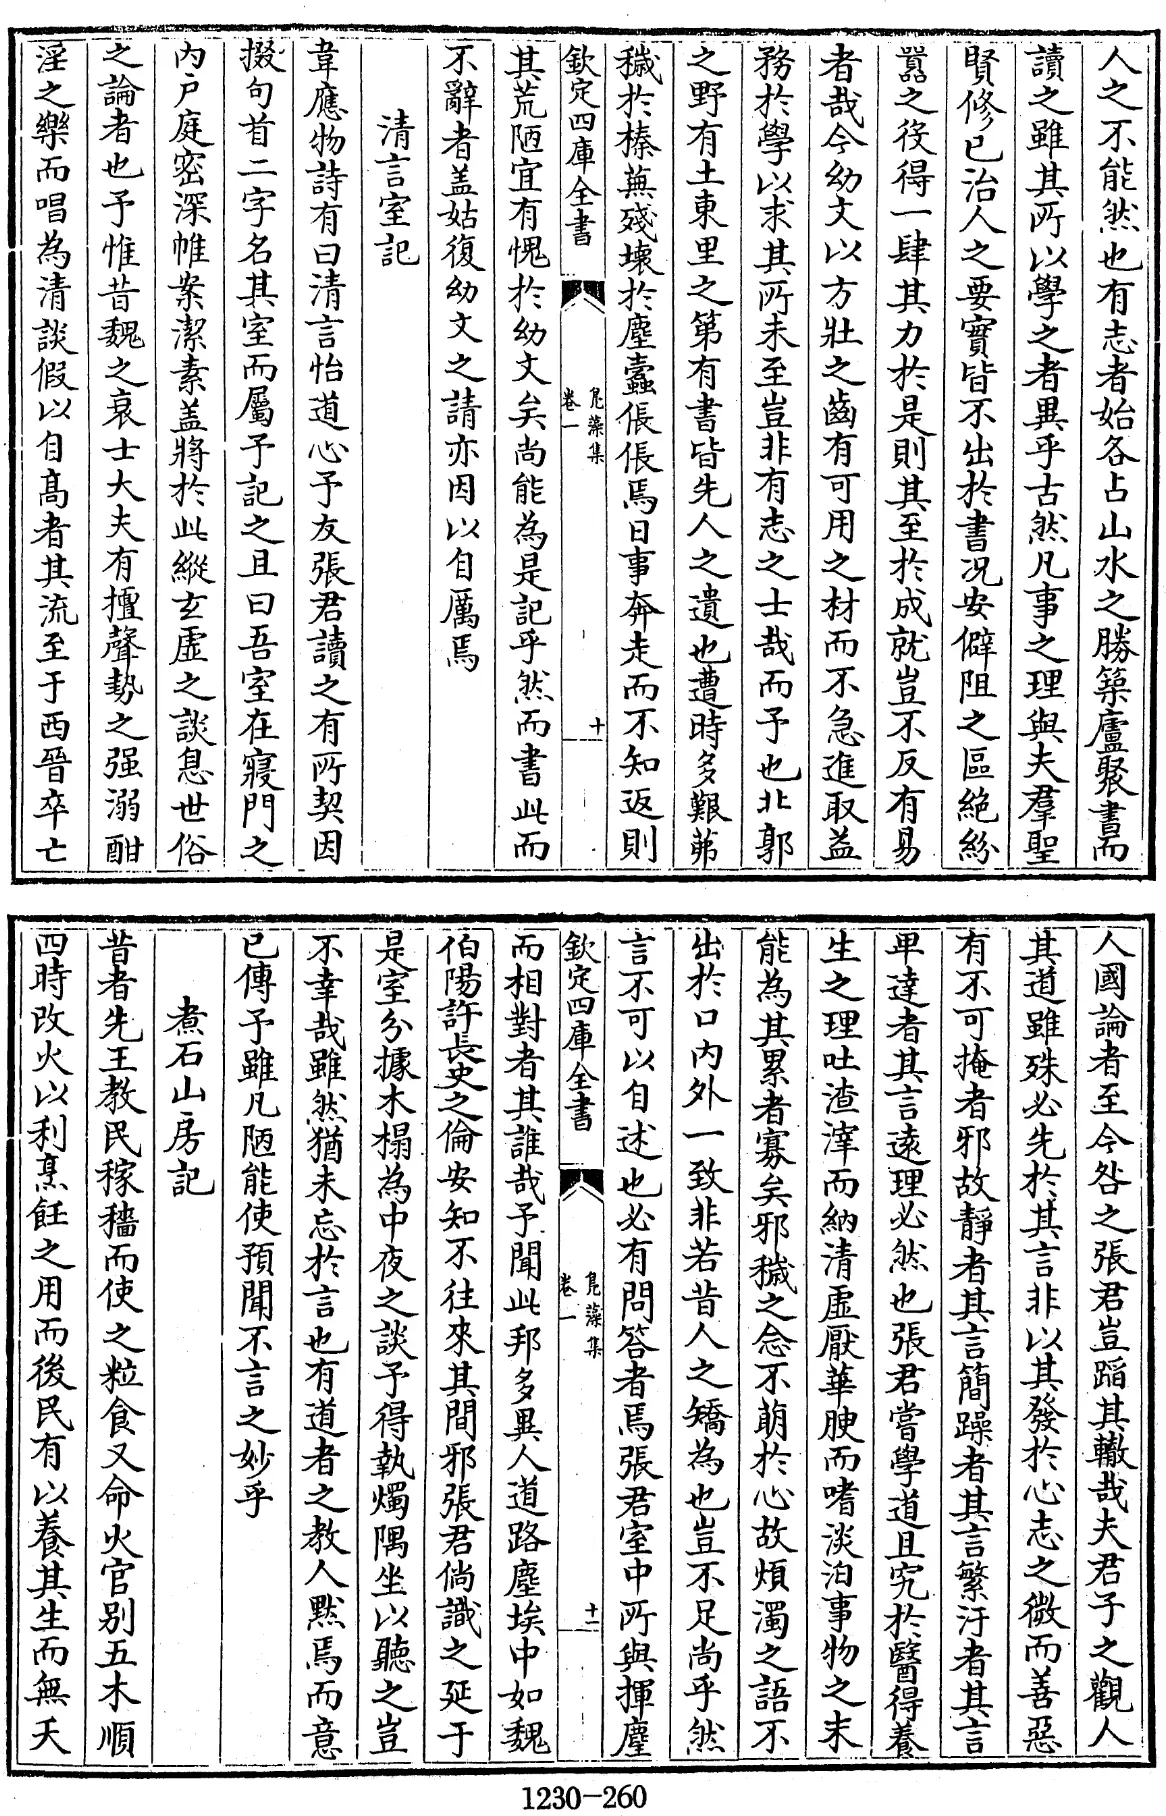 人之不能然也有志者始各占山水之勝築廬聚書而
讀之雖其所以學之者異乎古然凡事之理與夫羣聖
賢修已治人之要實皆不出於書况安僻阻之區絶紛
囂之役得一肆其力於是則其至於成就豈不反有易
者哉今幼文以方壯之齒有可用之材而不急進取益
務於學以求其所未至豈非有志之士哉而予也北郭
之野有土東里之第有書皆先人之遺也遭時多艱茀
穢於榛蕪殘壞於塵蠹倀倀焉日事奔走而不知返則
欽定四庫全書
鳧藻集
卷一
十
其荒陋宜有愧於幼文矣尚能為是記乎然而書此而
不辭者盖姑復幼文之請亦因以自厲焉
清言室記
韋應物詩有曰清言怡道心予友張君讀之有所契因
掇句首二字名其室而屬予記之且曰吾室在寢門之
内戶庭密深帷案潔素盖將於此縱玄虛之談息世俗
之論者也予惟昔魏之衰士大夫有擅聲勢之强溺酣
淫之樂而唱為清談假以自髙者其流至于西晉卒亡
人國論者至今咎之張君豈蹈其轍哉夫君子之觀人
其道雖殊必先於其言非以其發於心志之微而善惡
有不可掩者邪故靜者其言簡躁者其言繁汙者其言
卑達者其言遠理必然也張君嘗學道且究於醫得養
生之理吐渣滓而納清虛厭華腴而嗜淡泊事物之末
能為其累者寡矣邪穢之念不萌於心故煩濁之語不
出於口内外一致非若昔人之矯為也豈不足尚乎然
言不可以自述也必有問答者焉張君室中所與揮麈
欽定四庫全書
鳧藻集
卷一
十一
而相對者其誰哉予聞此邦多異人道路塵埃中如魏
伯陽許長史之倫安知不往來其間邪張君倘識之延于
是室分據木榻為中夜之談予得執燭隅坐以聽之豈
不幸哉雖然猶未忘於言也有道者之教人黙焉而意
已傳予雖凡陋能使預聞不言之妙乎
煮石山房記
昔者先王教民稼穡而使之粒食又命火官别五木順
四時改火以利烹飪之用而後民有以養其生而無夭
1230-260